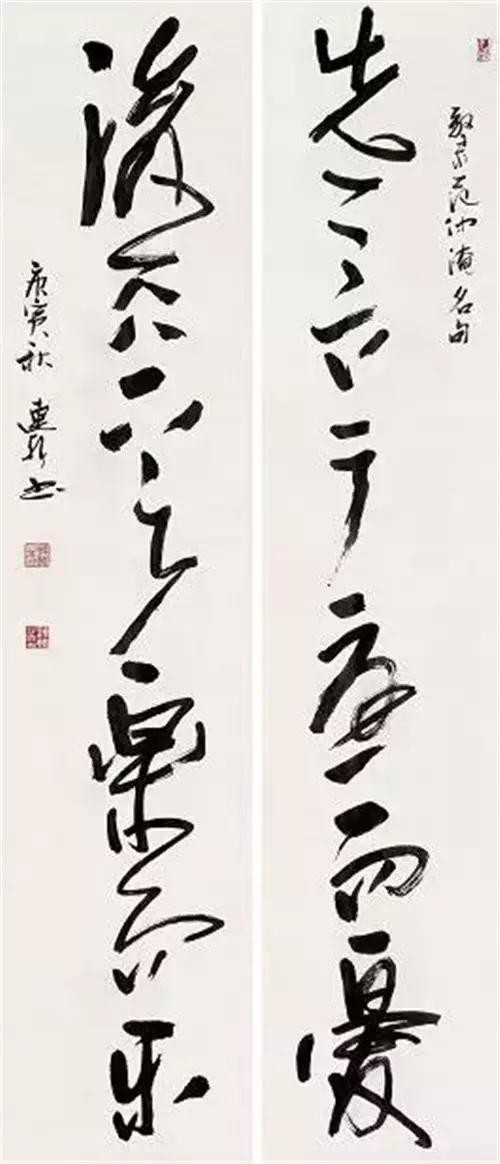 范仲淹名句
先天下之憂而憂
後天下之樂而乐
庚寅秋